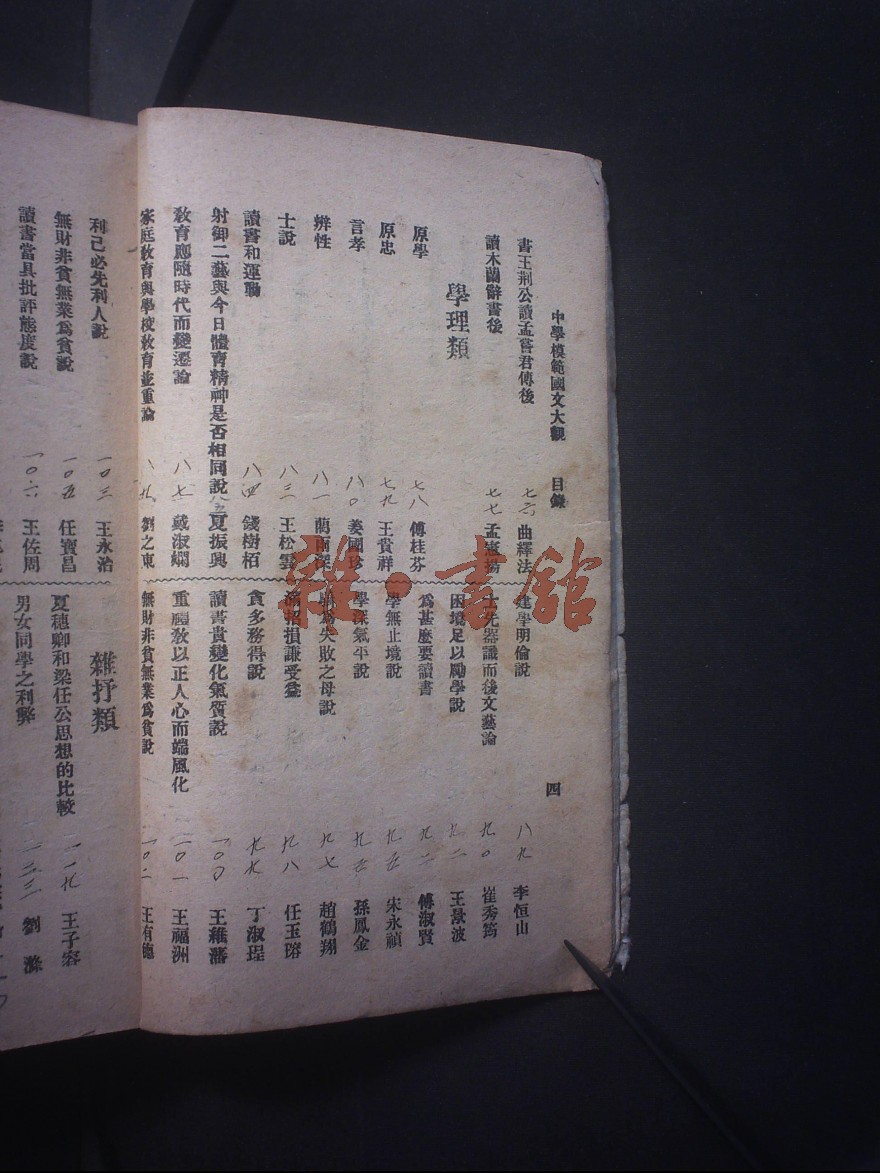 中學模範國文大觀 目錄 四
書王荆公讀孟嘗君傳後 七六 曲繹法
讀木蘭辭書後 七七 孟憲揚
學理類
原學 七八 傅桂芬
原忠 七九 王賞祥
言孝 八〇 姜國珍
辨性 八一 藺雨深
士說 八三 王松雲
讀書和運動 八四 錢樹栢
射御二藝與今日體育精神是否相同說 八五 夏振興
敎育應隨時代而變遷論 八七 戴淑嫻
家庭敎育與學校敎育並重論 八九 劉之東
建學明倫說 八九 李恒山
士先器識而後文藝論 九〇 崔秀筠
困境足以勵學說 九一 王景波
爲甚麼要讀書 九二 傅淑賢
學無止境說 九五 宋永禎
學深氣平說 九五 孫鳳金
爲失敗之母說 九七 趙鶴翔
滿招損謙受益 九八 任玉瑢
貪多務得說 九九 丁淑珵
讀書貴變化氣質說 一〇〇 王維藩
重禮敎以正人心而端風化 一〇一 王福洲
無財非貧無業爲貧說 一〇二 王有德
利己必先利人說 一〇三 王永治
無財非貧無業爲貧說 一〇五 任寶昌
讀書當具批評態度說 一〇六 王佐周
雜抒類
夏穗卿和梁任公思想的比較 一一九 王子容
男女同學之利弊 一二三 劉滌
雜·書館